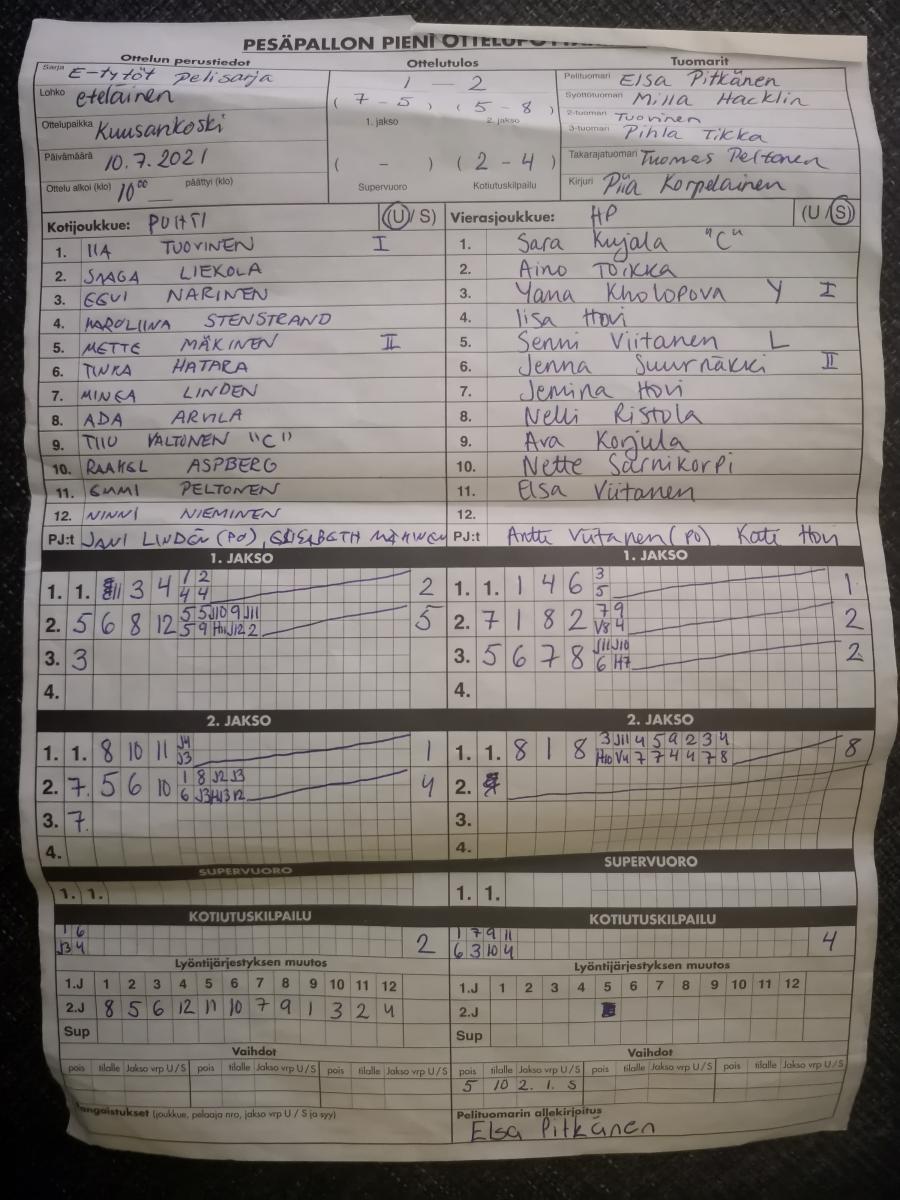 PESÄPALLON PIENI
Ottelun perustiedot
Sarja E-tytöt Pelisarja
Lohko eteläinen
Ottelupaikka Kuusankoski
Päivämäärä 10.7.2021
Ottelu alkoi (klo) 10⁰⁰ päättyi (klo)
Ottelutulos
1 - 2
( 7 - 5 ) ( 5 - 8 )
1. jakso 2. jakso
( - ) ( 2 - 4 )
Supervuoro Kotiutuskilpailu
Tuomarit
Pelituomari Elsa Pitkänen
Syöttötuomari Milla Hacklin
2-tuomari Tuovinen
3-tuomari Pihla Tikka
Takarajatuomari Tuomas Peltonen
Kirjuri Piia Korpelainen
Kotijoukkue: PUHTI (U / S)
1. IIA TUOVINEN I
2. SAAGA LIEKOLA
3. EEVI NARINEN
4. KAROLIINA STENSTRAND
5. METTE MÄKINEN II
6. TINKA HATARA
7. MINEA LINDEN
8. ADA ARVILA
9. TIIU VALTONEN "C"
10. RAAKEL ASPBERG
11. EMMI PELTONEN
12. NINNI NIEMINEN
PJ:t JANI LINDÉN (PO),
Vierasjoukkue: HP (U / S)
1. Sara Kujala "C"
2. Aino Toikka
3. Yana Kholopova Y I
4. Iisa Hovi
5. Senni Viitanen L
6. Jenna Suurnäkki II
7. Jemina Hovi
8. Nelli Ristola
9. Ava Korjula
10. Nette Sarnikorpi
11. Elsa Viitanen
12.
PJ:t Antti Viitanen (PO) Kati Hovi
1. JAKSO
1. 1. 3 4 1 2 2
4 4
2. 5 6 8 12 5 5 J10 9 J11 5
5 9 H11 J12 2
3. 3
4.
1. JAKSO
1. 1. 1 4 6 3 1
5
2. 7 1 8 2 7 9 2
V8 4
3. 5 6 7 8 J11 J10 2
6 H7
4.
2. JAKSO
1. 1. 8 10 11 J4 1
J3
2. 7. 5 6 10 1 8 J2 J3 4
6 J3 H13 12
3. 7.
4.
2. JAKSO
1. 1. 8 1 8 3 J11 4 5 9 2 3 4 8
H10 V4 7 7 4 4 7 8
2.
3.
4.
SUPERVUORO
1. 1.
SUPERVUORO
1. 1.
KOTIUTUSKILPAILU
1 6 2
J3 4
KOTIUTUSKILPAILU
1 7 9 11 4
6 3 10 4
Lyöntijärjestyksen muutos
1.J 1 2 3 4 5 6 7 8 9 10 11 12
2.J 8 5 6 12 11 10 7 9 1 3 2 4
Sup
Lyöntijärjestyksen muutos
1.J 1 2 3 4 5 6 7 8 9 10 11 12
2.J
Sup
Vaihdot
pois tilalle Jakso vrp U / S pois tilalle Jakso vrp U / S pois tilalle Jakso vrp U / S
Vaihdot
pois tilalle Jakso vrp U / S pois tilalle Jakso vrp U / S pois tilalle Jakso vrp U / S
5 10 2. 1. S
(joukkue, pelaaja nro, jakso vrp U / S ja syy)
Pelituomarin allekirjoitus
Elsa Pitkänen